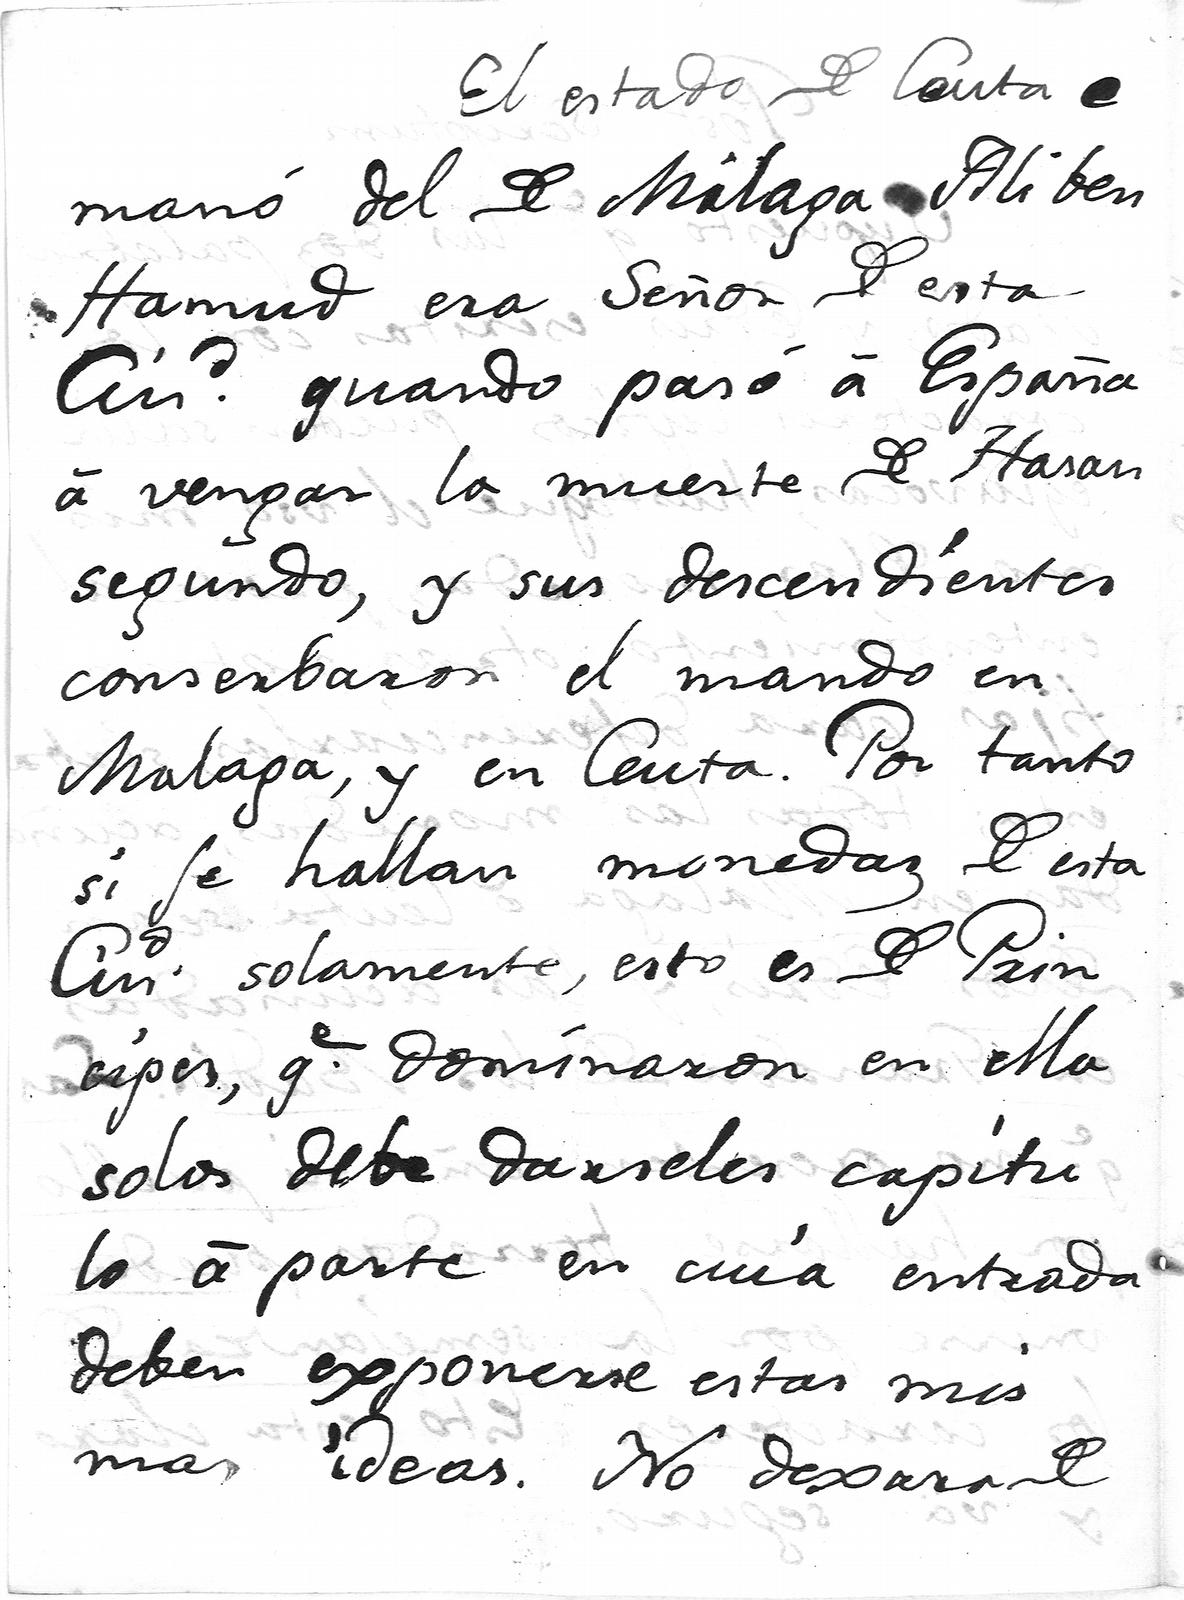 El estado de Ceuta e
manó del de Málaga Ali ben
Hamud era Señor de esta
Ciud. quando pasó â España
â vengar la muerte de Hasan
segũndo, y sus descendientes
conserbaron el mando en
Malaga, y en Ceuta. Por tanto
si se hallan monedas de esta
Ciud. solamente, esto es de Prin
cipes, qe. dominaron en ella
solos debe darseles capitu
lo â parte en cuia entrada
deben exponerse estas mis
mas ideas. No dexara de